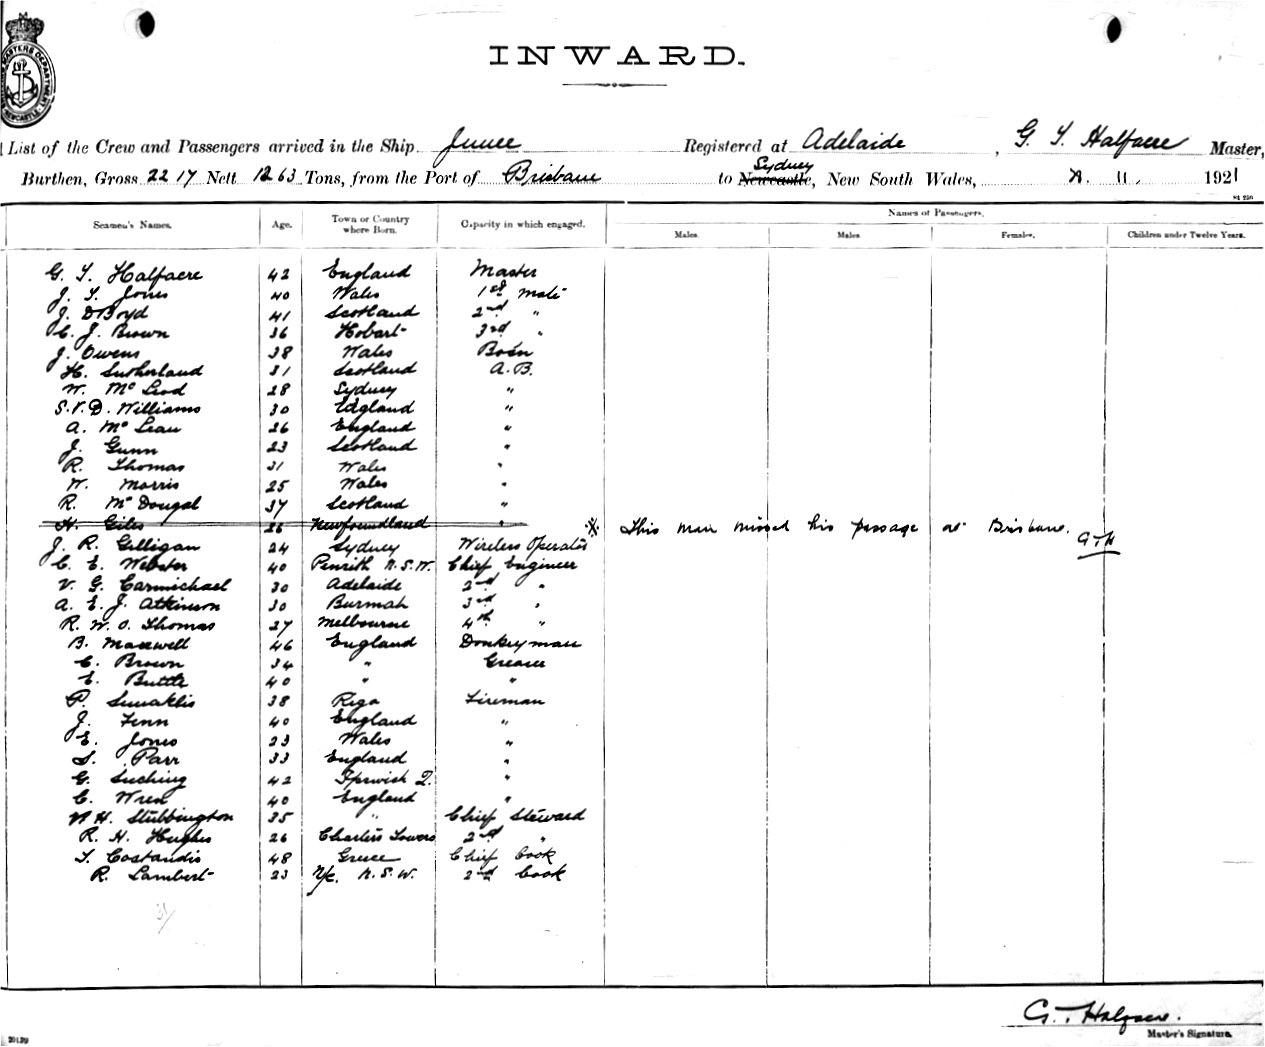 INWARD.
List of the Crew and Passengers arrived in the Ship Junee Registered at Adelaide, G. T. Halfacre Master,
Burthen, Gross 2217 Nett 1263 Tons, from the Port of Brisbane to Newcastle Sydney, New South Wales, 11. 1921
S1 250
Names of Passengers.
Seamen's Names. Age. Town or Country where Born. Capacity in which engaged. Males. Males. Females. Children under Twelve Years.
G. T. Halfacre 42 England Master
J. T. Jones 40 Wales 1st Mate
J. D Boyd 41 Scotland 2nd "
C. J. Brown 36 Hobart 3rd "
J. Owens 38 Wales Bosn
H. Sutherland 31 Scotland A.B.
W. McLeod 28 Sydney "
S.V.D. Williams 30 England "
A. McLean 26 England "
J. Gunn 23 Scotland "
R. Thomas 31 Wales "
W. Morris 25 Wales "
R. McDougal 37 Scotland "
H. Giles 26 Newfoundland " ※ This man missed his passage at Brisbane. GTH
J. R. Gilligan 24 Sydney Wireless Operator
C. E. Webster 40 Penrith N.S.W. Chief Engineer
V. G. Carmichael 30 Adelaide 2nd "
A. E. J. Atkinson 30 Burmah 3rd "
R. W. O. Thomas 27 Melbourne 4th "
B. Maxwell 46 England Donkeyman
C. Brown 34 " Greaser
E. Buttle 40 " "
P. 38 Riga Fireman
J. Fenn 40 England "
E. Jones 23 Wales "
S. Parr 33 England "
G. Suching 42 Ipswich Q. "
C. Wren 40 England "
W H. Stubbington 35 " Chief Steward
R. H. Hughes 26 Charters Towers 2nd "
T. Costandis 48 Greece Chief Cook
R. Lambert 23 N/c. N.S.W. 2nd Cook
31/
G. T. Halfacre.
Master's Signature.
20129